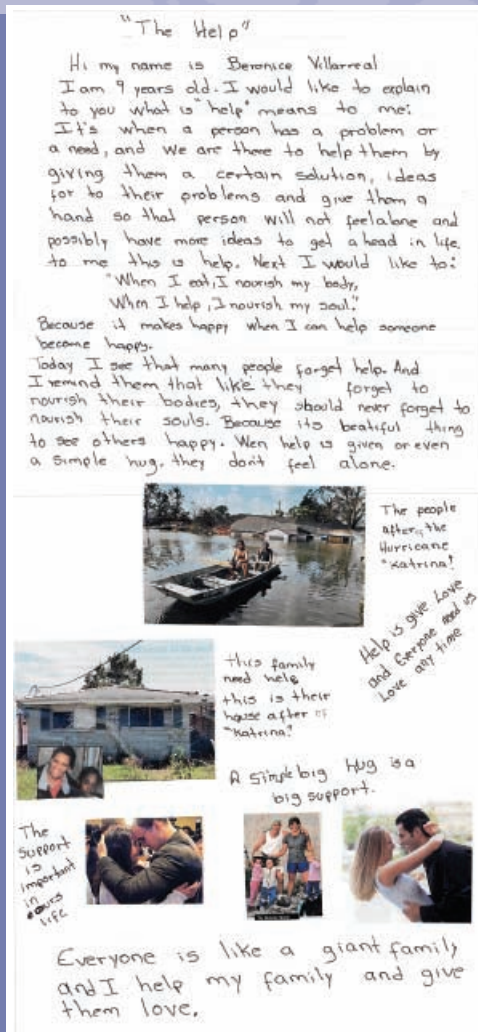 "The Help"
Hi my name is Beronice Villarreal
I am 9 years old. I would like to explain
to you what is "help" means to me:
It's when a person has a problem or
a need, and we are there to help them by
giving them a certain solution, ideas
for to their problems and give them a
hand so that person will not feel alone and
possibly have more ideas to get a head in life.
to me this is help. Next I would like to:
"When I eat, I nourish my body,
When I help, I nourish my soul."
Because it makes happy when I can help someone
become happy.
Today I see that many people forget help. And
I remind them that like they forget to
nourish their bodies, they should never forget to
nourish their souls. Because its beatiful thing
to see others happy. Wen help is given or even
a simple hug, they don't feel alone.
The people
after, the
Hurricane
"Katrina"
Help is give Love
and Everyone need us
Love any time
this family
need help
this is their
house after of
"Katrina"
A simple big Hug is a
big support.
The
support
is
important
in
ours
life
Everyone is like a giant family
and I help my family and give
them love.